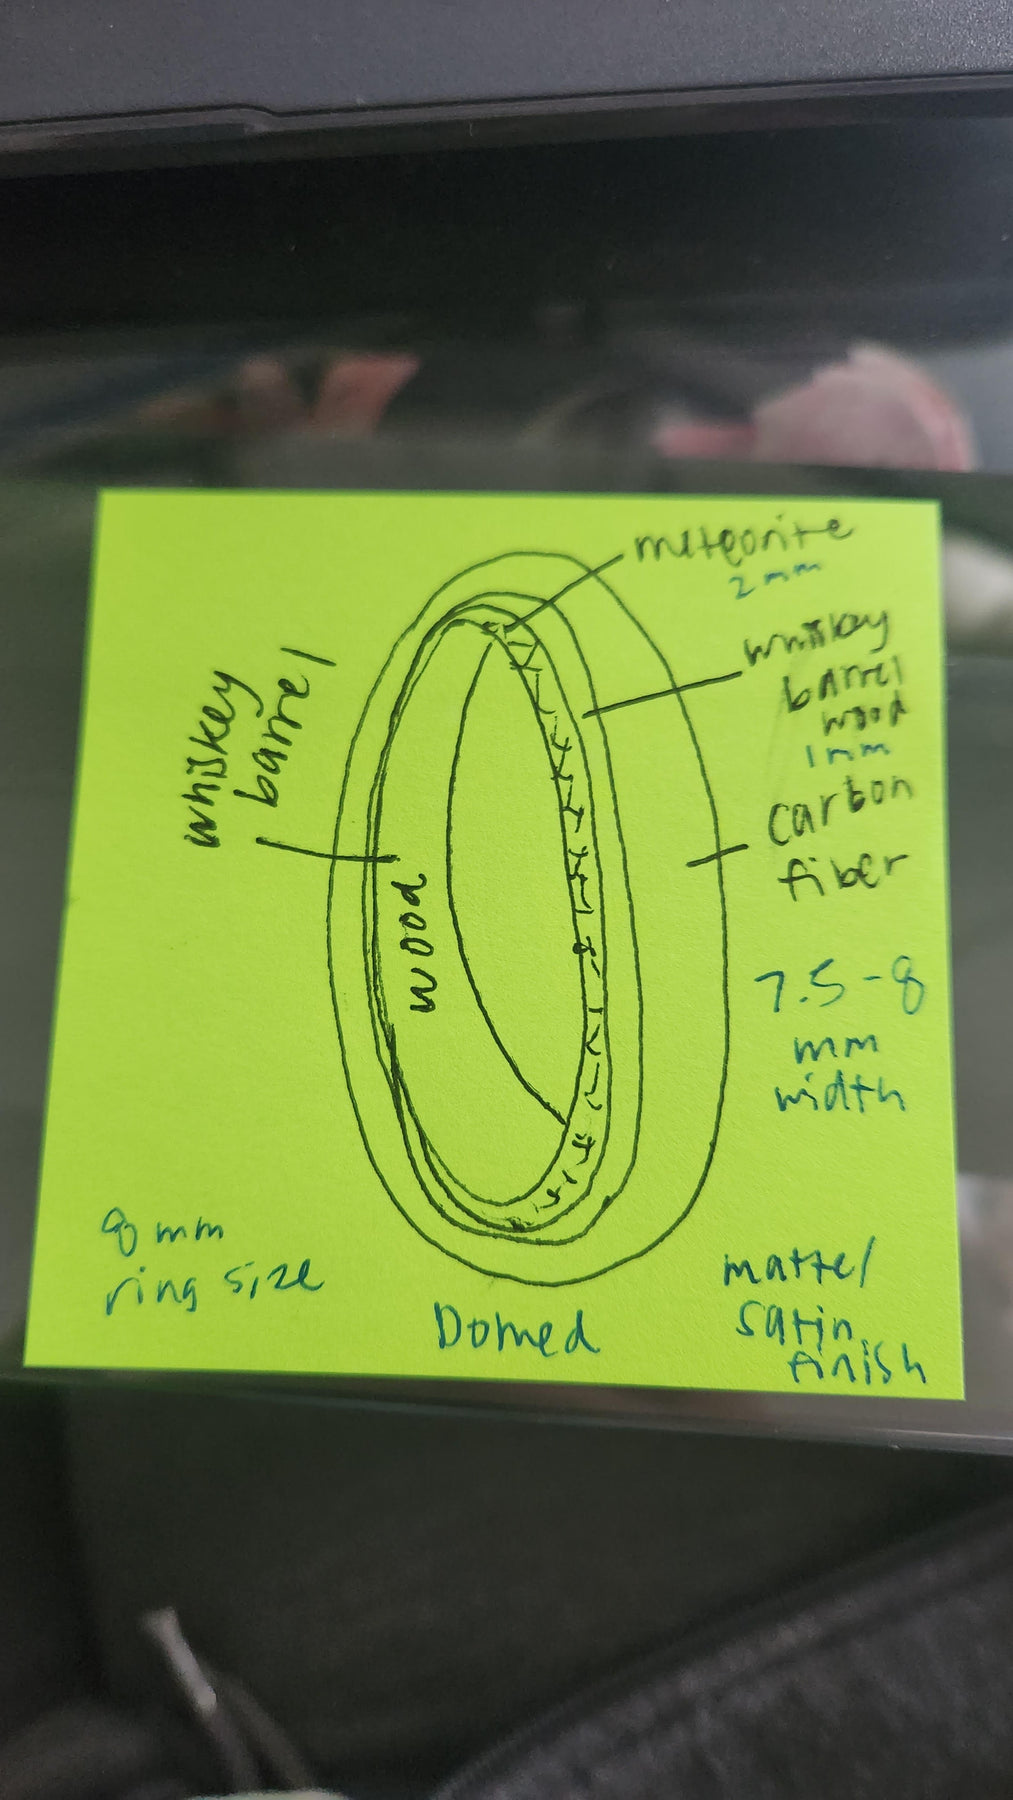 meteorite
2 mm
whiskey
barrel
wood
1 mm
carbon
fiber
7.5-8
mm
width
whiskey
barrel
wood
8 mm
ring size
Domed
matte/
satin
finish